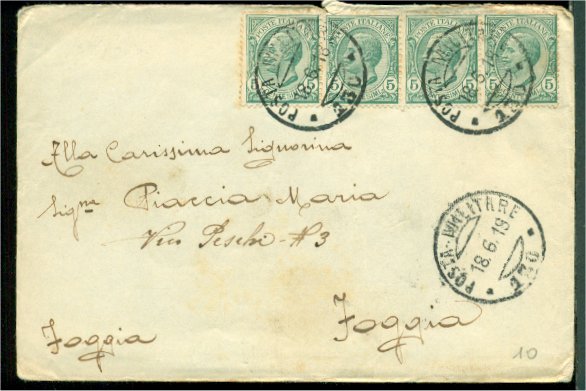 POSTE ITALIANE POSTE ITALIANE POSTE ITALIANE POSTE ITALIANE
5 5 5 5
POSTA MILITARE 18.6.19 POSTA MILITARE 18.6.19
Alla Carissima Signorina
Signa Piaccia Maria
Via Peschi #3
POSTA MILITARE
18.6.19
130
Foggia Foggia
10